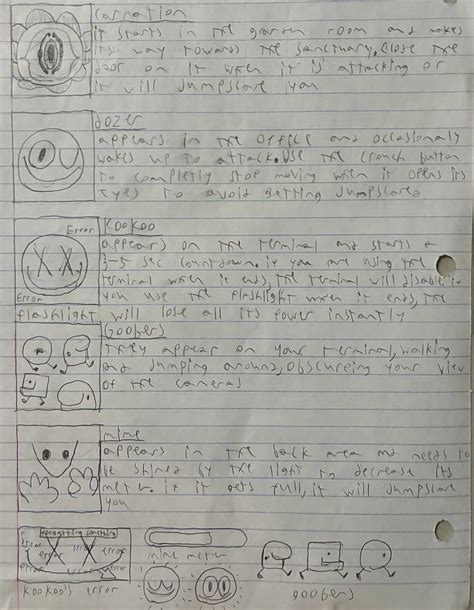 Carnation
it starts in the garden room and makes
its way towards the sanctuary. Close the
door on it when it is attacking or
it will jumpscare you
dozer
appears in the office and occasionaly
wakes up to attack. Use the crouch button
to completly stop moving when it opens its
eyes to avoid getting jumpscared
Error
Kookoo
appears on the terminal and starts a
3-5 sec countdown. if you are using the
terminal when it ends, the terminal will disable. if
Error
you use the flashlight when it ends, the
flashlight will lose all its power instantly
Goobers
They appear on your terminal, walking
and jumping around, obscureing your view
of the cameras
mime
appears in the back area and needs to
be shined by the light to decrease its
meter. if it gets full, it will jumpscare
you
error error
error error
error error
mime meter
Kookoo's error
goobers